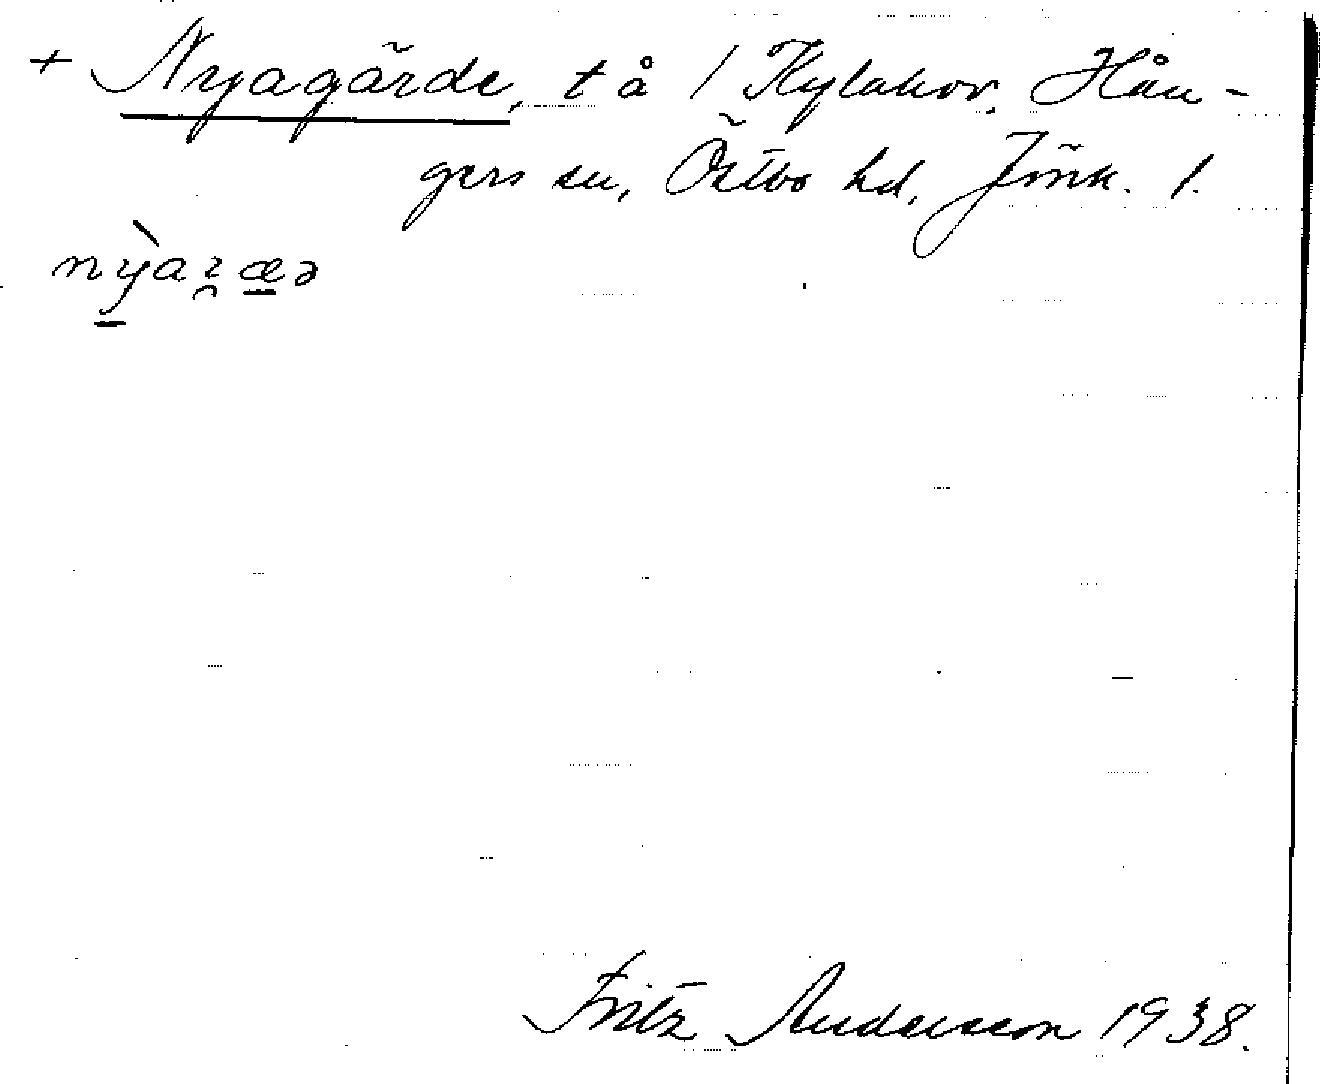 + Nyagärde, t å 1 Kylakov, Hån-
gers sn, Östbo hd, Jönk. l.
nỳaɿæə
Fritz Andersson 1938.